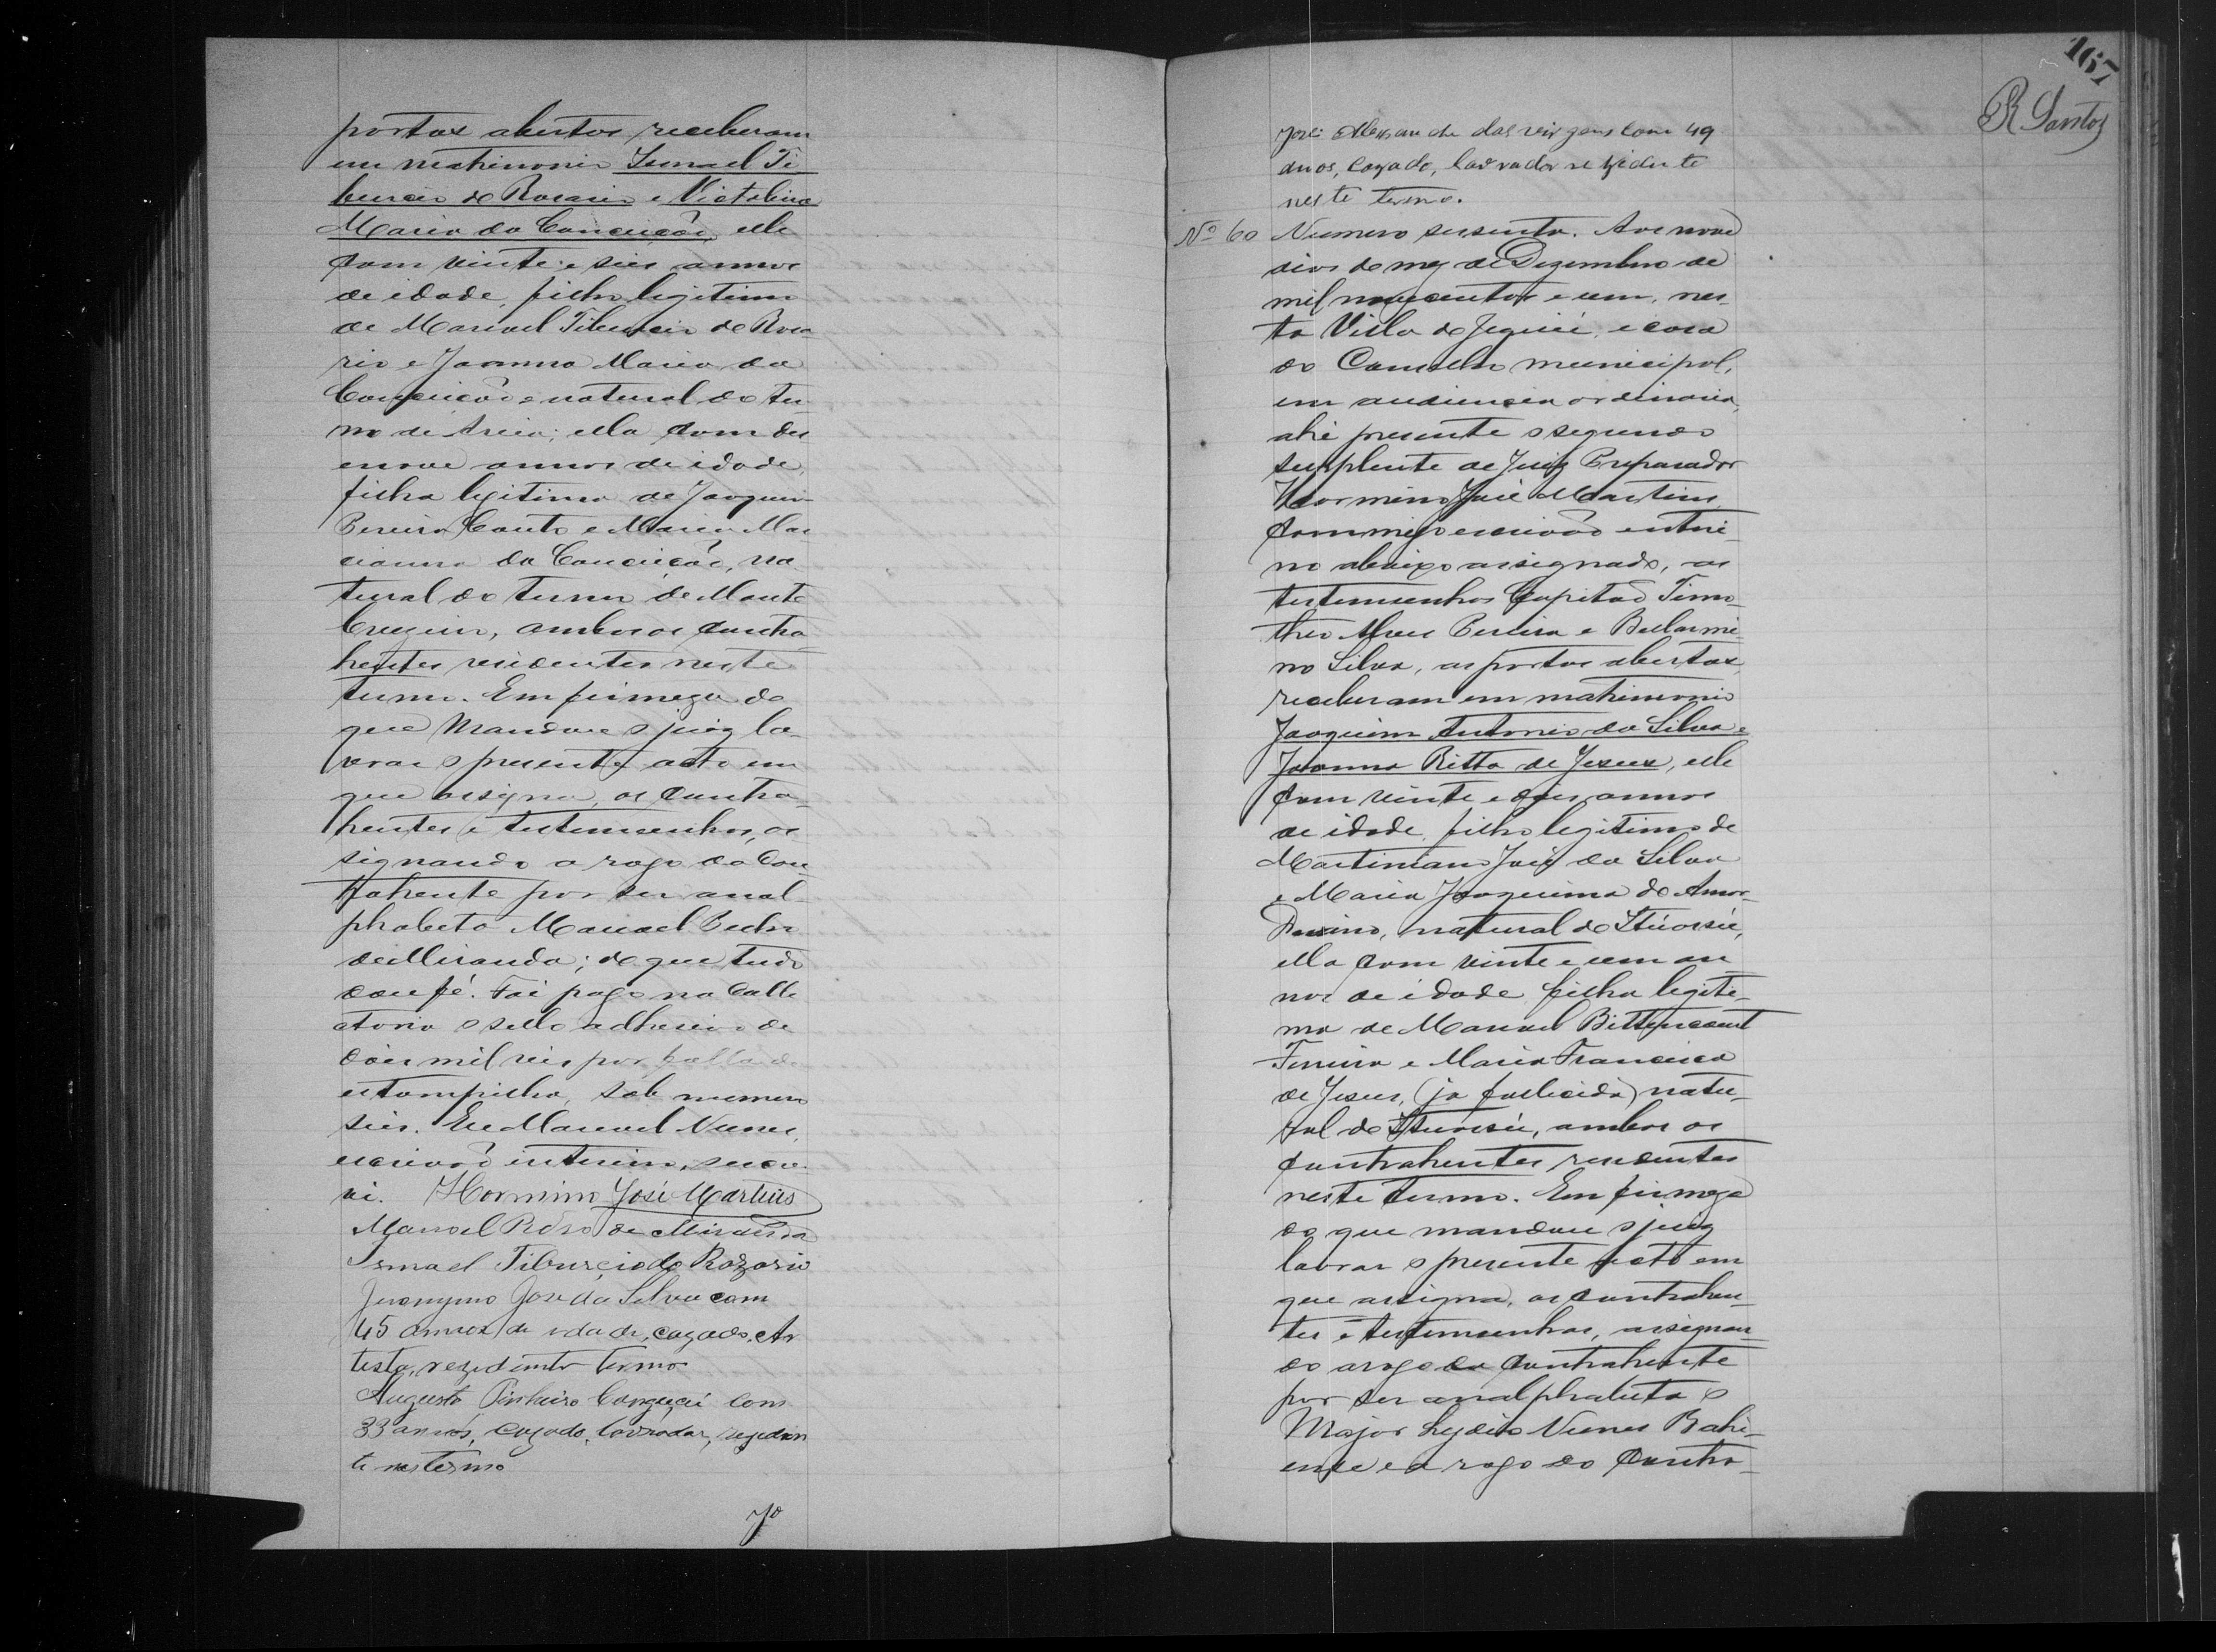 portas abertas receberam
em matrimonio Ismael Ti
burcio do Rosario e Victalina
Maria da Conceição, elle
com vinte e seis annos
de idade, filho legitimo
de Manoel Tiburcio do Rosa
rio e Joanna Maria da
Conceição e natural do ter
mo de Areia; ella com des
enove annos de idade,
filha legitima de Joaquim
Pereira Couto e Maria Mar
cianna da Conceição, na
tural do termo de Monte
Cruzeiro, ambos os contra
hentes residentes neste
termo. Em firmeza do
que mandou o juiz la
vrar o presente acto em
que assigna, os contra
hentes e testemunhas, as
signando a rogo da con
trahente por ser anal
phabeta Manoel Pedro
de Miranda; do que tudo
dou fé. Foi pago na Colle
ctoria o sello adhesivo de
dois mil reis por falta de
estampilha, sob numero
seis. Eu Manoel Nunes,
escrivão interino, escre
vi. Hormino José Martins
Manoel Pedro de Miranda
Ismael Tiburcio do Rozario
Jeronymo José da Silva com
45 annos de idade, cazado, Ar
tista, rezidente termo
Augusto Pinheiro com
33 annos, cazado, lavrador, rezeden
te nestermo
Jº
167
R Santos
José Alexandre das Virgens com 49
anos, cazado, lavrador rezidente
neste termo.
Nº 60 Numero sessenta. Aos nove
dias do mez de Dezembro de
mil novecentos e um, nes-
ta Villa de Jequié, e casa
do Conselho municipal,
em audiencia ordinaria,
ahi presente o segundo
supplente de Juiz Preparador
Hormino José Martins
commigo escrivão interi-
no abaixo assignado, as
testemunhas Capitão Timo-
theo Alves Pereira e Bellarmi
no Silva, as portas abertas,
receberam em matrimonio
Joaquim Antonio da Silva e
Joanna Ritta de Jesus, elle
com vinte e dois annos
de idade, filho legitimo de
Martiniano José da Silva
e Maria Joaquina do Amor-
Divino, natural de
ella com vinte e um an
nos de idade filha legiti-
ma de Manoel Bittencourt
Ferreira e Maria Francisca
de Jesus, (ja fallecida) natu-
ral de ambos os
contrahentes residentes
neste termo. Em firmeza
do que mandou o juiz
lavrar o presente acto em
que assigna, os contrahen-
tes e testemunhas, assignan-
do a rogo da contrahente
por ser analphabeta o
Major Lydio Nunes Bahi-
ense e a rogo do contra-